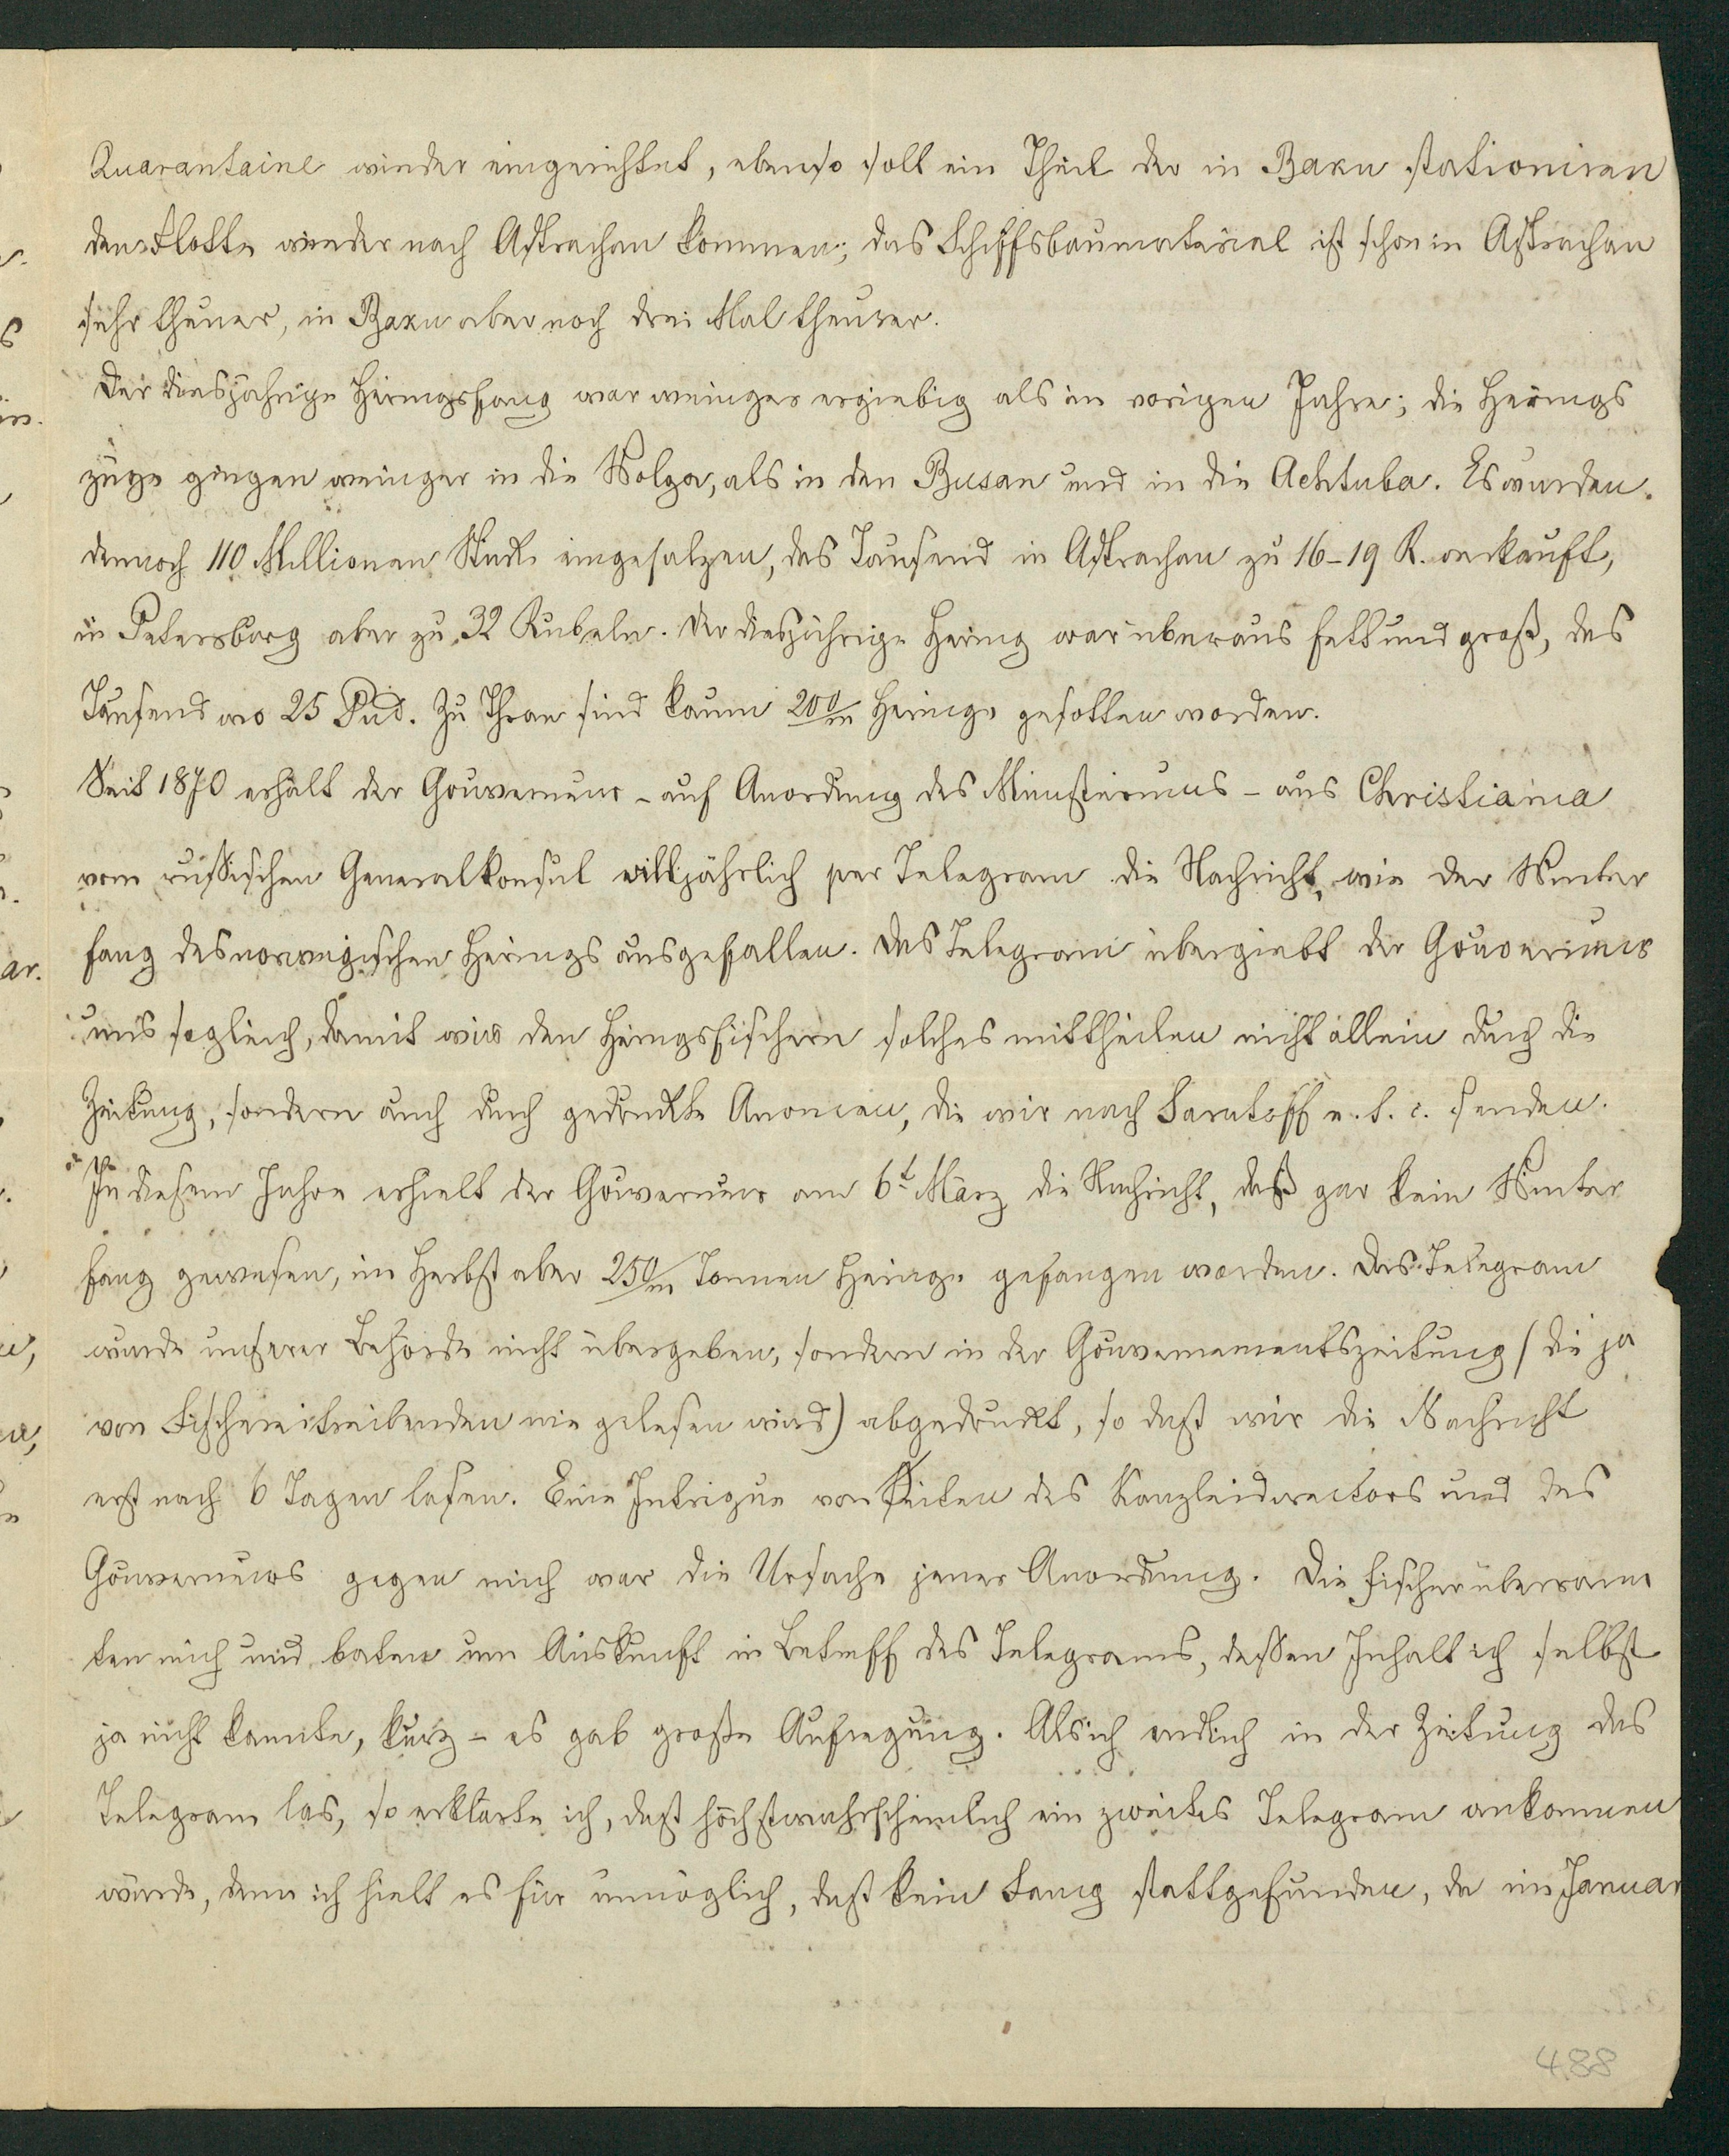 Quarantaine wieder eingerichtet, ebenso soll ein Theil der in Baku stationiren
den Flotte wieder nach Astrachan kommen; das Schiffsbaumaterial ist schon in Astrachan
sehr theuer, in Baku aber noch drei Mal theurer.
Der diesjährige Heringsfang war weniger ergiebig als im vorigen Jahre; die Herings
züge gingen weniger in die Wolga, als in den Busan und in die Achtuba. Es wurden
dennoch 110 Millionen Stück eingesalzen, das Tausend in Astrachan zu 16-19 R. verkauft,
in Petersburg aber zu 32 Rubeln. Der diesjährige Hering war überaus fett und groß, das
Tausend wo 25 Pud. Zu Thran sind kaum 200/m Heringe gesotten worden.
Seit 1870 erhält der Gouverneur - auf Anordnung des Ministeriums - aus Christiania
vom russischen Generalkonsul alljährlich per Telegram die Nachricht, wie der Winter
fang des norwegischen Herings ausgefallen. Das Telegram übergiebt der Gouverneur
uns sogleich, damit wir den Heringsfischern solches mittheilen nicht allein durch die
Zeitung, sondern auch durch gedruckte Anoncen, die wir nach Saratoff e.t.c. senden.
In diesem Jahre erhielt der Gouverneur am 6t März die Nachricht, daß gar kein Winter
fang gewesen, im Herbst aber 250/m Tonnen Heringe gefangen worden. Das Telegram
wurde unserer Behörde nicht übergeben, sondern in der Gouvernementszeitung (die ja
von Fischereitreibenden nie gelesen wird) abgedruckt, so daß wir die Nachricht
erst nach 6 Tagen lasen. Eine Intrigue von Seiten des Kanzleidirectors und des
Gouverneurs gegen mich war die Ursache jener Anordnung. Die Fischer überrann
ten mich und baten um Auskunft in Betreff des Telegrams, dessen Inhalt ich selbst
ja nicht kannte, kurz - es gab große Aufregung. Als ich endlich in der Zeitung das
Telegram las, so erklärte ich, daß höchstwahrscheinlich ein zweites Telegram ankommen
würde, denn ich hielt es für unmöglich, daß kein Fang stattgefunden, da im Januar
488